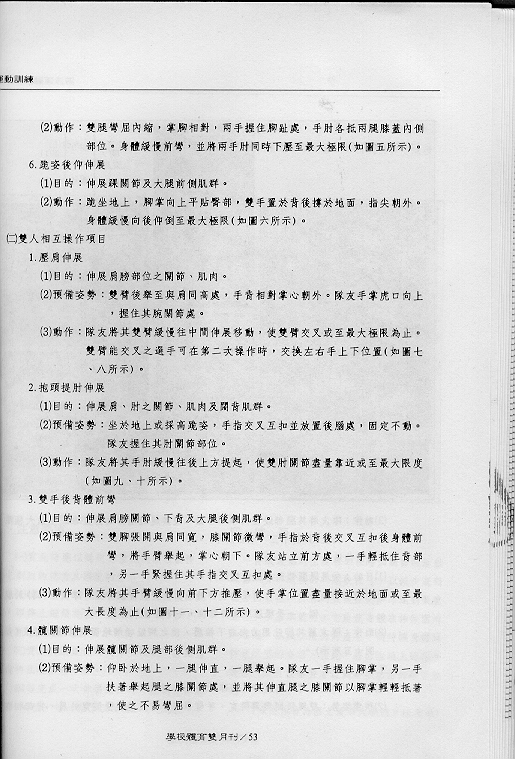 運動訓練
(2)動作：雙腿彎屈內縮，掌腳相對，兩手握住腳趾處，手肘各抵兩腿膝蓋內側
部位。身體緩慢前彎，並將兩手肘同時下壓至最大極限(如圖五所示)。
6.跪姿後仰伸展
(1)目的：伸展踝關節及大腿前側肌群。
(2)動作：跪坐地上，腳掌向上平貼臀部，雙手置於背後撐於地面，指尖朝外。
身體緩慢向後仰倒至最大極限(如圖六所示)。
㈡雙人相互操作項目
1.壓肩伸展
(1)目的：伸展肩膀部位之關節、肌肉。
(2)預備姿勢：雙臂後舉至與肩同高處，手背相對掌心朝外。隊友手掌虎口向上
，握住其腕關節處。
(3)動作：隊友將其雙臂緩慢往中間伸展移動，使雙臂交叉或至最大極限為止。
雙臂能交叉之選手可在第二次操作時，交換左右手上下位置(如圖七
、八所示)。
2.抱頭提肘伸展
(1)目的：伸展肩、肘之關節、肌肉及闊背肌群。
(2)預備姿勢：坐於地上或採高跪姿，手指交叉互扣並放置後腦處，固定不動。
隊友握住其肘關節部位。
(3)動作：隊友將其手肘緩慢往後上方提起，使雙肘關節盡量靠近或至最大限度
(如圖九、十所示)。
3.雙手後背體前彎
(1)目的：伸展肩膀關節、下背及大腿後側肌群。
(2)預備姿勢：雙腳張開與肩同寬，膝關節微彎，手指於背後交叉互扣後身體前
彎，將手臂舉起，掌心朝下。隊友站立前方處，一手輕抵住背部
，另一手緊握住其手指交叉互扣處。
(3)動作：隊友將其手臂緩慢向前下方推壓，使手掌位置盡量接近於地面或至最
大長度為止(如圖十一、十二所示)。
4.髖關節伸展
(1)目的：伸展髖關節及腿部後側肌群。
(2)預備姿勢：仰卧於地上，一腿伸直，一腿舉起。隊友一手握住腳掌，另一手
扶著舉起腿之膝關節處，並將其伸直腿之膝關節以腳掌輕輕抵著
，使之不易彎屈。
學校體育雙月刊／53